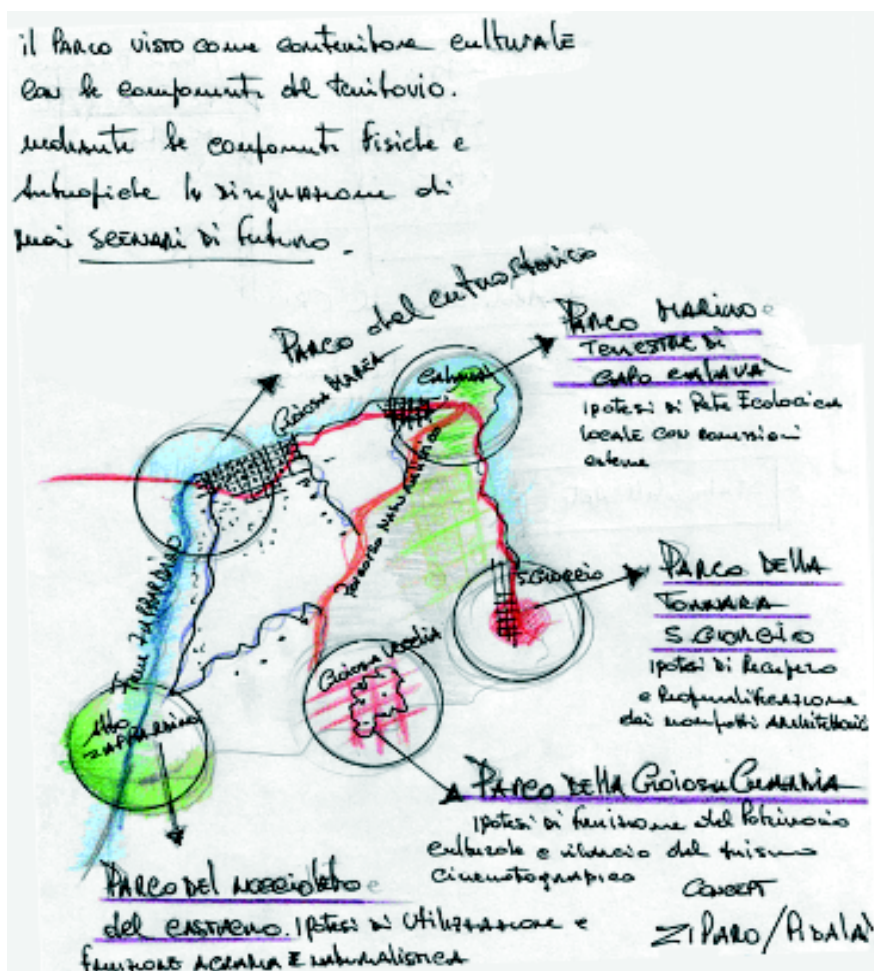 il Parco visto come contenitore culturale
con le componenti del territorio.
mediante le componenti fisiche e
antropiche la di
nuovi SCENARI DI Futuro.
PARCO del centro storico
GIOIOSA MAREA
CALAVÀ
PARCO MARINO e
TERRESTRE DI
CAPO CALAVÀ
IPOTESI DI Rete Ecologica
LOCALE CON connessioni
esterne
Percorso Naturalistico
Torre ZAPPARDINO
S. GIORGIO
PARCO DELLA
TONNARA
S. GIORGIO
IPOTESI DI Recupero
e Rifunzionalizzazione
dei manufatti ARCHITETTONICI
GIOIOSA VECCHIA
Alto
ZAPPARDINO
PARCO DELLA GIOIOSA GUARDIA
IPOTESI DI fruizione del Patrimonio
culturale e rilancio del turismo
cinematografico
PARCO DEL NOCCIOLETO e
del CASTAGNO. IPOTESI DI UTILIZZAZIONE e
FRUIZIONE AGRARIA E NATURALISTICA
CONCEPT
ZIPARO/PIDALÀ